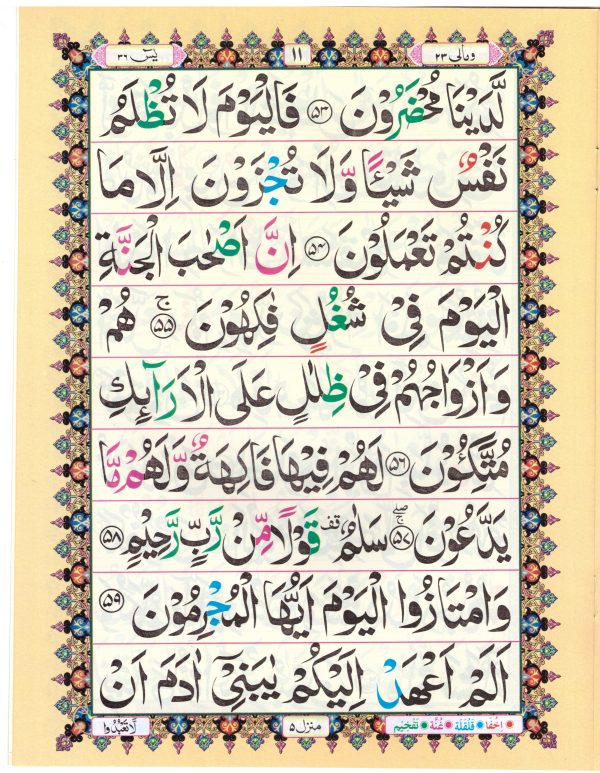 ومالی ۲۳
۱۱
یٰسٓ ۳۶
لَّدَيْنَا مُحْضَرُوْنَ ۵۳ فَالْيَوْمَ لَا تُظْلَمُ
نَفْسٌ شَيْـًٔا وَّلَا تُجْزَوْنَ اِلَّا مَا
كُنْتُمْ تَعْمَلُوْنَ ۵۴ اِنَّ اَصْحٰبَ الْجَنَّةِ
الْيَوْمَ فِيْ شُغُلٍ فٰكِهُوْنَ ۚ ۵۵ هُمْ
وَاَزْوَاجُهُمْ فِيْ ظِلٰلٍ عَلَى الْاَرَآئِكِ
مُتَّكِـُٔوْنَ ۵۶ لَهُمْ فِيْهَا فَاكِهَةٌ وَّلَهُمْ مَّا
يَدَّعُوْنَ ۵۷ ج صلے سَلٰمٌ قف قَوْلًا مِّنْ رَّبٍّ رَّحِيْمٍ ۵۸
وَامْتَازُوا الْيَوْمَ اَيُّهَا الْمُجْرِمُوْنَ ۵۹
اَلَمْ اَعْهَدْ اِلَيْكُمْ يٰبَنِيْٓ اٰدَمَ اَنْ
اِخفا قلقلہ غُنّہ تفخیم
منزل ۵
لَا تَعْبُدُوا